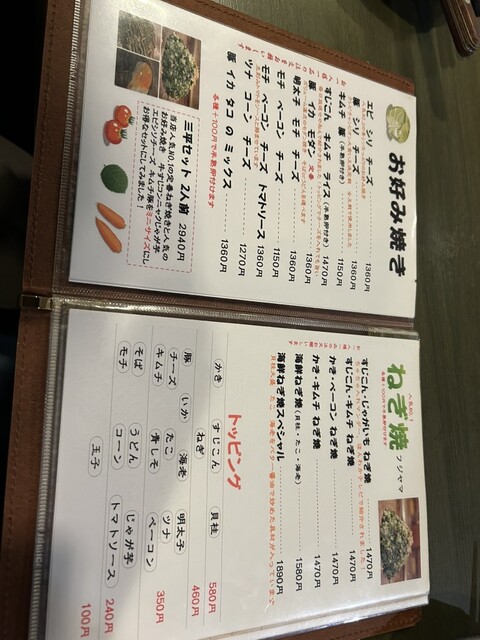 お好み焼き
エビ シソ チーズ 1360円
豚 シソ チーズ 1360円
キムチ 豚(半熟卵付き) 1150円
すじこん キムチ ライス(半熟卵付き) 1470円
豚 イカ モダン 定番 1360円
明太子 モチ チーズ 1360円
モチ ベーコン チーズ 1150円
モチ ベーコン チーズ トマトソース 1360円
ツナ コーン チーズ 1270円
豚 イカ タコ の ミックス 1360円
各種+100円で半熟卵付けます
三平セット 2人前 2940円
当店人気NO.1の定番ねぎ焼きと人気の
お好み焼き 牛すじコンニャクじゃが芋
エビシソチーズ、キムチ豚をミニサイズにし
お得なセットにしてみました!
ねぎ焼 フジヤマ
人気NO.1
各種+100円で半熟卵付けます
すじこん・じゃがいも ねぎ焼 1470円
すじこん・キムチ ねぎ焼 1470円
かき・ベーコン ねぎ焼 1470円
かき・キムチ ねぎ焼 1470円
海鮮ねぎ焼(貝柱・たこ・海老) 1580円
海鮮ねぎ焼スペシャル 1890円
トッピング
かき すじこん 貝柱 580円
ねぎ 460円
豚 いか 海老 明太子
チーズ たこ ツナ 350円
キムチ 青しそ ベーコン
そば うどん じゃが芋 240円
モチ コーン トマトソース
玉子 100円